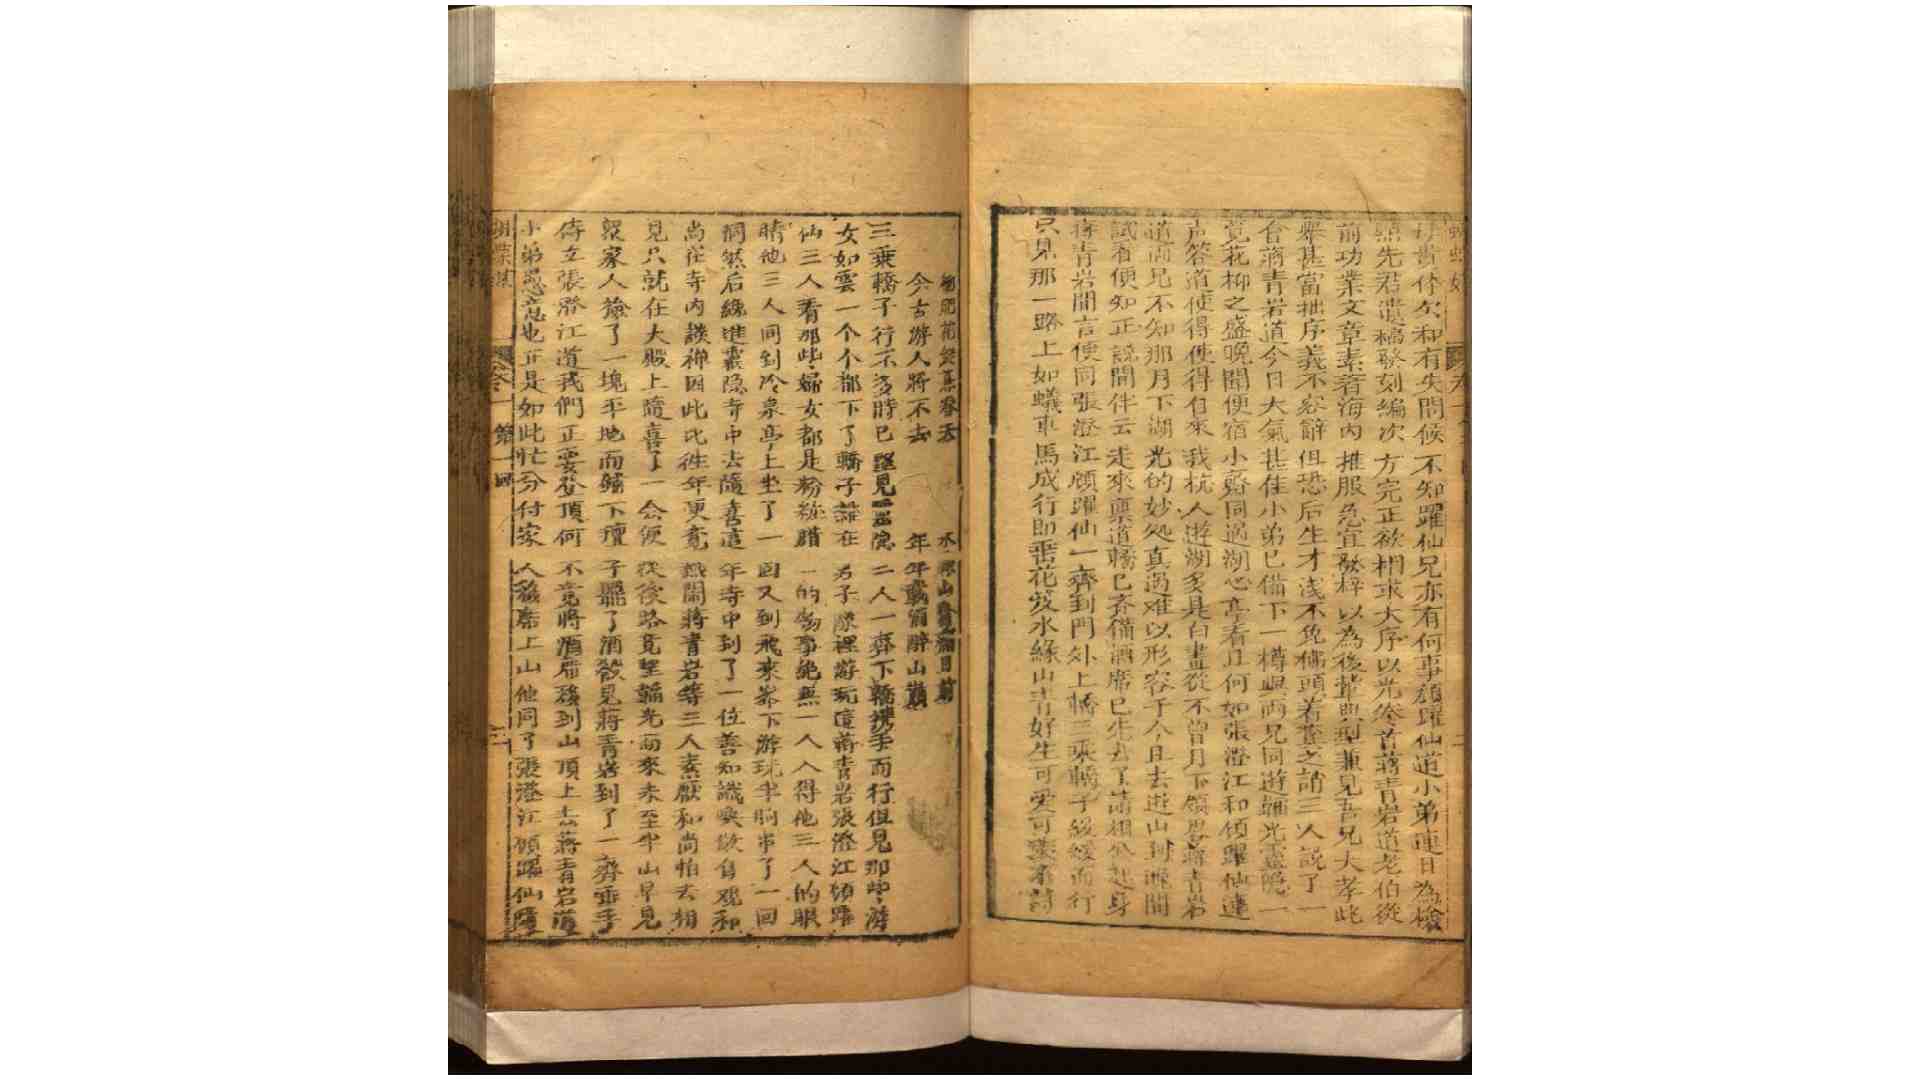 有失問候不知躍仙兄亦有何事顧躍仙道小弟連日為檢
先君遺稿發刻編次方完正欲相求大序以光卷首蔣青岩道老伯從
前功業文章素著海內推服急宜發梓以為後輩典型兼見吾兄大孝此
舉甚當拙序義不容辭但恐后生才淺不免佛頭着之誚三人說了一
會蔣青岩道今日大氣甚佳小弟已備下一樽與兩兄同遊一
覽花柳之盛晚間便宿小齋同過湖心亭看月何如張澄江和顧躍仙連
声答道使得使得自來我杭人遊湖多是白晝從不曾月下領畧蔣青岩
道兩兄不知那月下湖光的妙処真過难以形容了今且去遊山到晚間
試看便知正說間伴云走來稟道轎已齐俻酒席已先去了請相公起身
蔣青岩聞言便同張澄江顧躍仙一齊到門外上轎三乘轎子緩緩而行
只見那一路上如蟻車馬成行即垂花笑水綠山青好生可愛可羡有詩
春天
水
今古游人將不去
年年戴酒醉山巔
三乗轎子行不多時已望見
二人一齊下轎携手而行但見那些游
女如雲一个个都下了轎子雜在男子隊裡游玩這蔣青岩張澄江顧躍
仙三人看那些婦女都是粉粧腊一的物事絶無一人入得他三人的眼
睛他三人同到冷泉亭上坐了一囬又到飛來峯下游玩半晌串了一回
洞然后纔進靈隐寺中去隨喜這年寺中到了一位善知識喚做自観和
尚在寺内談禅因此比徃年更竟熱鬧蔣青岩等三人素厭和尚怕去相
見只就在大殿上隨喜了一会便從後路竟望韜光而來未至半山早見
衆家人揀了一塊平地而鋪下氊子擺了酒殽見蔣青岩到了一齊垂手
侍立張澄江道我們正要登頂何不竟將酒席移到山頂上去蔣青岩道
小弟愚意也正是如此忙分付家人移席上山他同了張澄江顧躍仙隨
第一囬
三